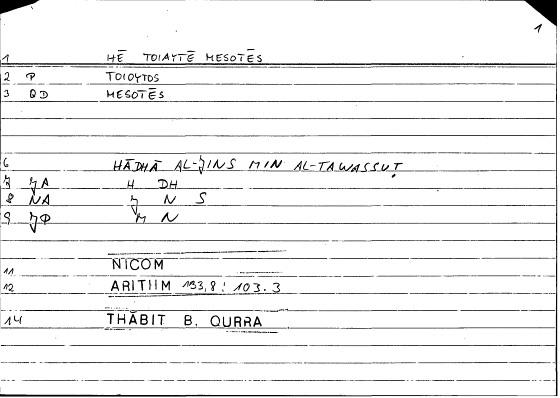 1
1 HĒ TOIAYTĒ MESOTĒS
2 P TOIOYTOS
3 QD MESOTĒS
6 HĀDHĀ AL-ǦINS MIN AL-TAWASSUṬ
7 ǦA H DH
8 NA Ǧ N S
9 ǦP M N
11 NICOM
12 ARITHM 133,8 : 103.3
14 THĀBIT B. QURRA